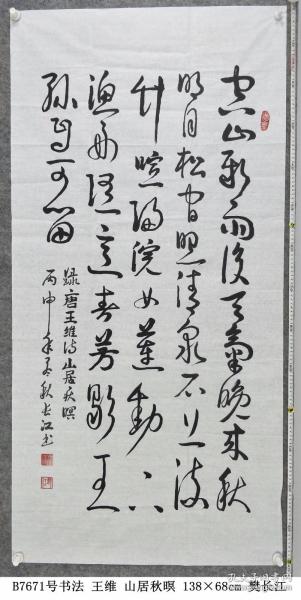 空山新雨後天氣晚來秋
明月松間照清泉石上流
竹喧歸浣女蓮動下
漁舟随意春芳歇王
孫自可留
録唐王維詩山居秋暝
丙申年秋长江书
B7671号书法 王维 山居秋暝 138×68cm 樊长江